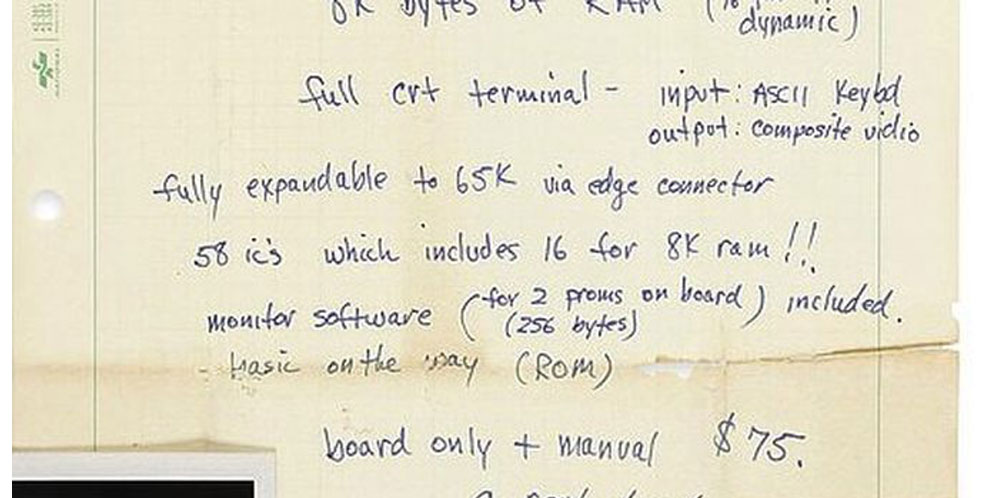 8K bytes of RAM (16
dynamic)
full crt terminal - input: ASCII Keybd
output: composite vidio
fully expandable to 65K via edge connector
58 ic's which includes 16 for 8K ram!!
monitor software (for 2 proms on board) included.
(256 bytes)
- basic on the way (ROM)
board only + manual $75.